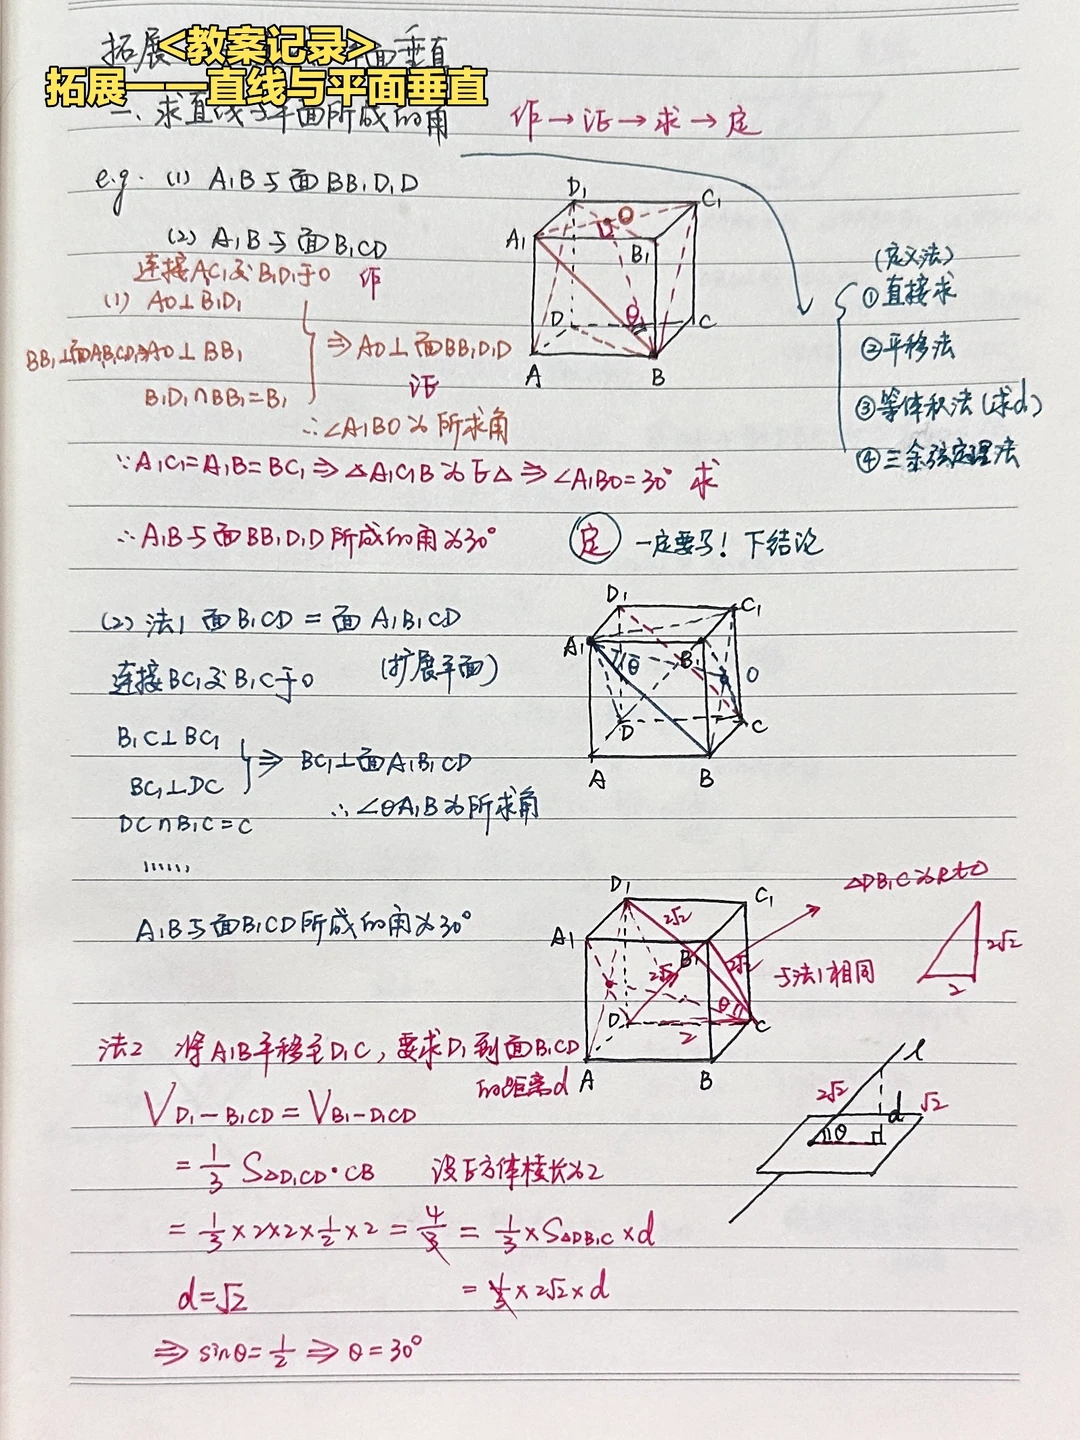 <教案记录>
拓展——直线与平面垂直
拓展 面垂直
一、求直线与平面所成的角 作→证→求→定
e.g. (1) A₁B与面BB₁D₁D
(2) A₁B与面B₁CD
连接AC₁交B₁D₁于O 作
(1) AO⊥B₁D₁
BB₁⊥面A₁B₁C₁D₁⇒AO⊥BB₁
B₁D₁∩BB₁=B₁
⇒AO⊥面BB₁D₁D
证
∴∠A₁BO为所求角
∵A₁C₁=A₁B=BC₁⇒△A₁C₁B为正△⇒∠A₁BO=30° 求
∴A₁B与面BB₁D₁D所成的角为30°
定 一定要写!下结论
D₁
C₁
O
A₁
B₁
θ
D
C
A
B
(定义法)
①直接求
②平移法
③等体积法(求d)
④三余弦定理法
(2) 法1 面B₁CD=面A₁B₁CD
连接BC₁交B₁C于O (扩展平面)
B₁C⊥BC₁
BC₁⊥DC
DC∩B₁C=C
⇒BC₁⊥面A₁B₁CD
∴∠OA₁B为所求角
......
A₁B与面B₁CD所成的角为30°
D₁
C₁
A₁
θ
B₁
O
D
C
A
B
法2 将A₁B平移至D₁C,要求D₁到面B₁CD
的距离d
V D₁-B₁CD=V B₁-D₁CD
=1/3 S△D₁CD·CB 设正方体棱长为2
=1/3×2×2×1/2×2=4/3=1/3×S△DB₁C×d
d=√2 =1/3×2√2×d
⇒sinθ=1/2⇒θ=30°
D₁
C₁
2√2
A₁
B₁
2√2
2√2
θ
D
2
C
A
B
△DB₁C为Rt△
2√2
2
与法1相同
l
2√2
d
√2
θ